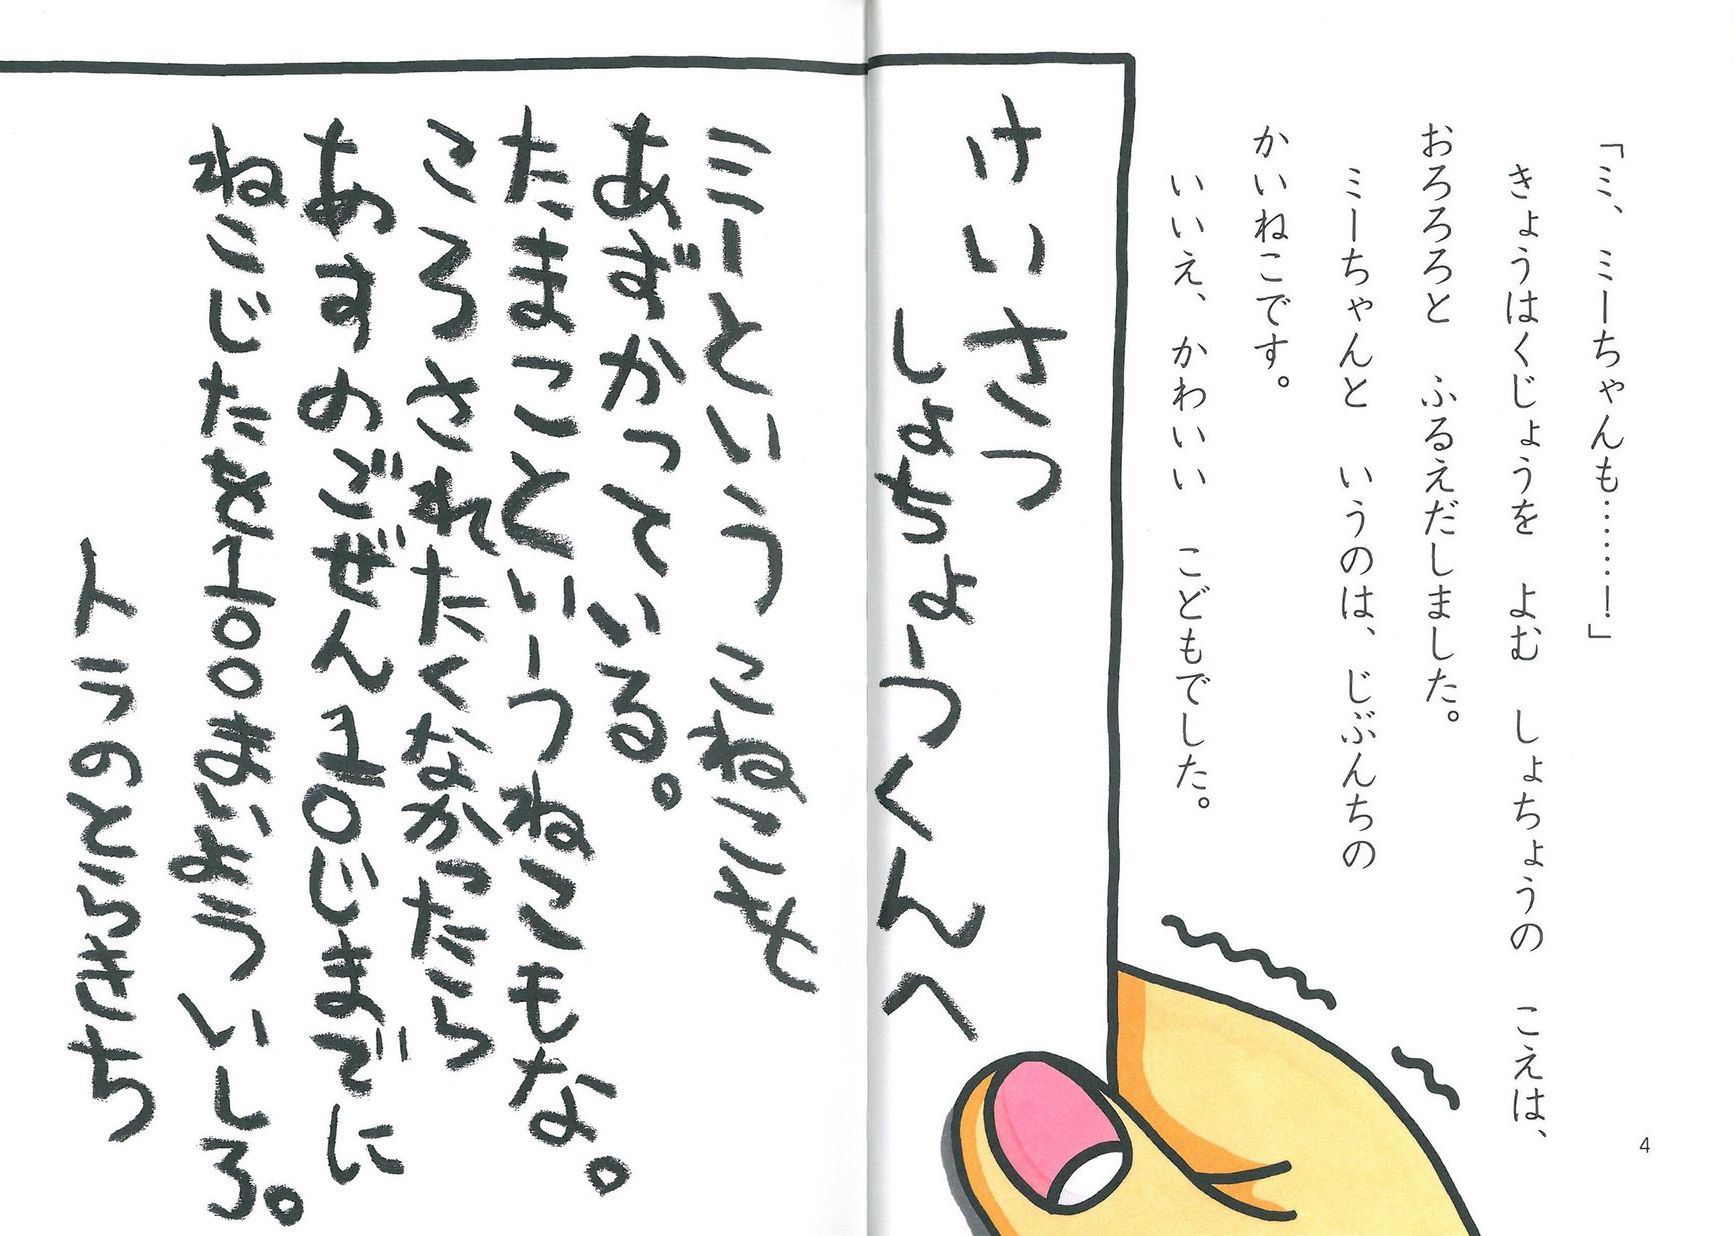 「ミ、ミーちゃんも……！」
きょうはくじょうを　よむ　しょちょうの　こえは、
おろろろと　ふるえだしました。
ミーちゃんと　いうのは、じぶんちの
かいねこです。
いいえ、かわいい　こどもでした。
4
けいさつ
しょちょーつくんへ
ミーという　こねこと
あずかっている。
たまこといーつねこもな。
ころされたくなかったら
あすのごぜん10じまでに
ねこじたを100まいよういしろ。
トラのとらきち